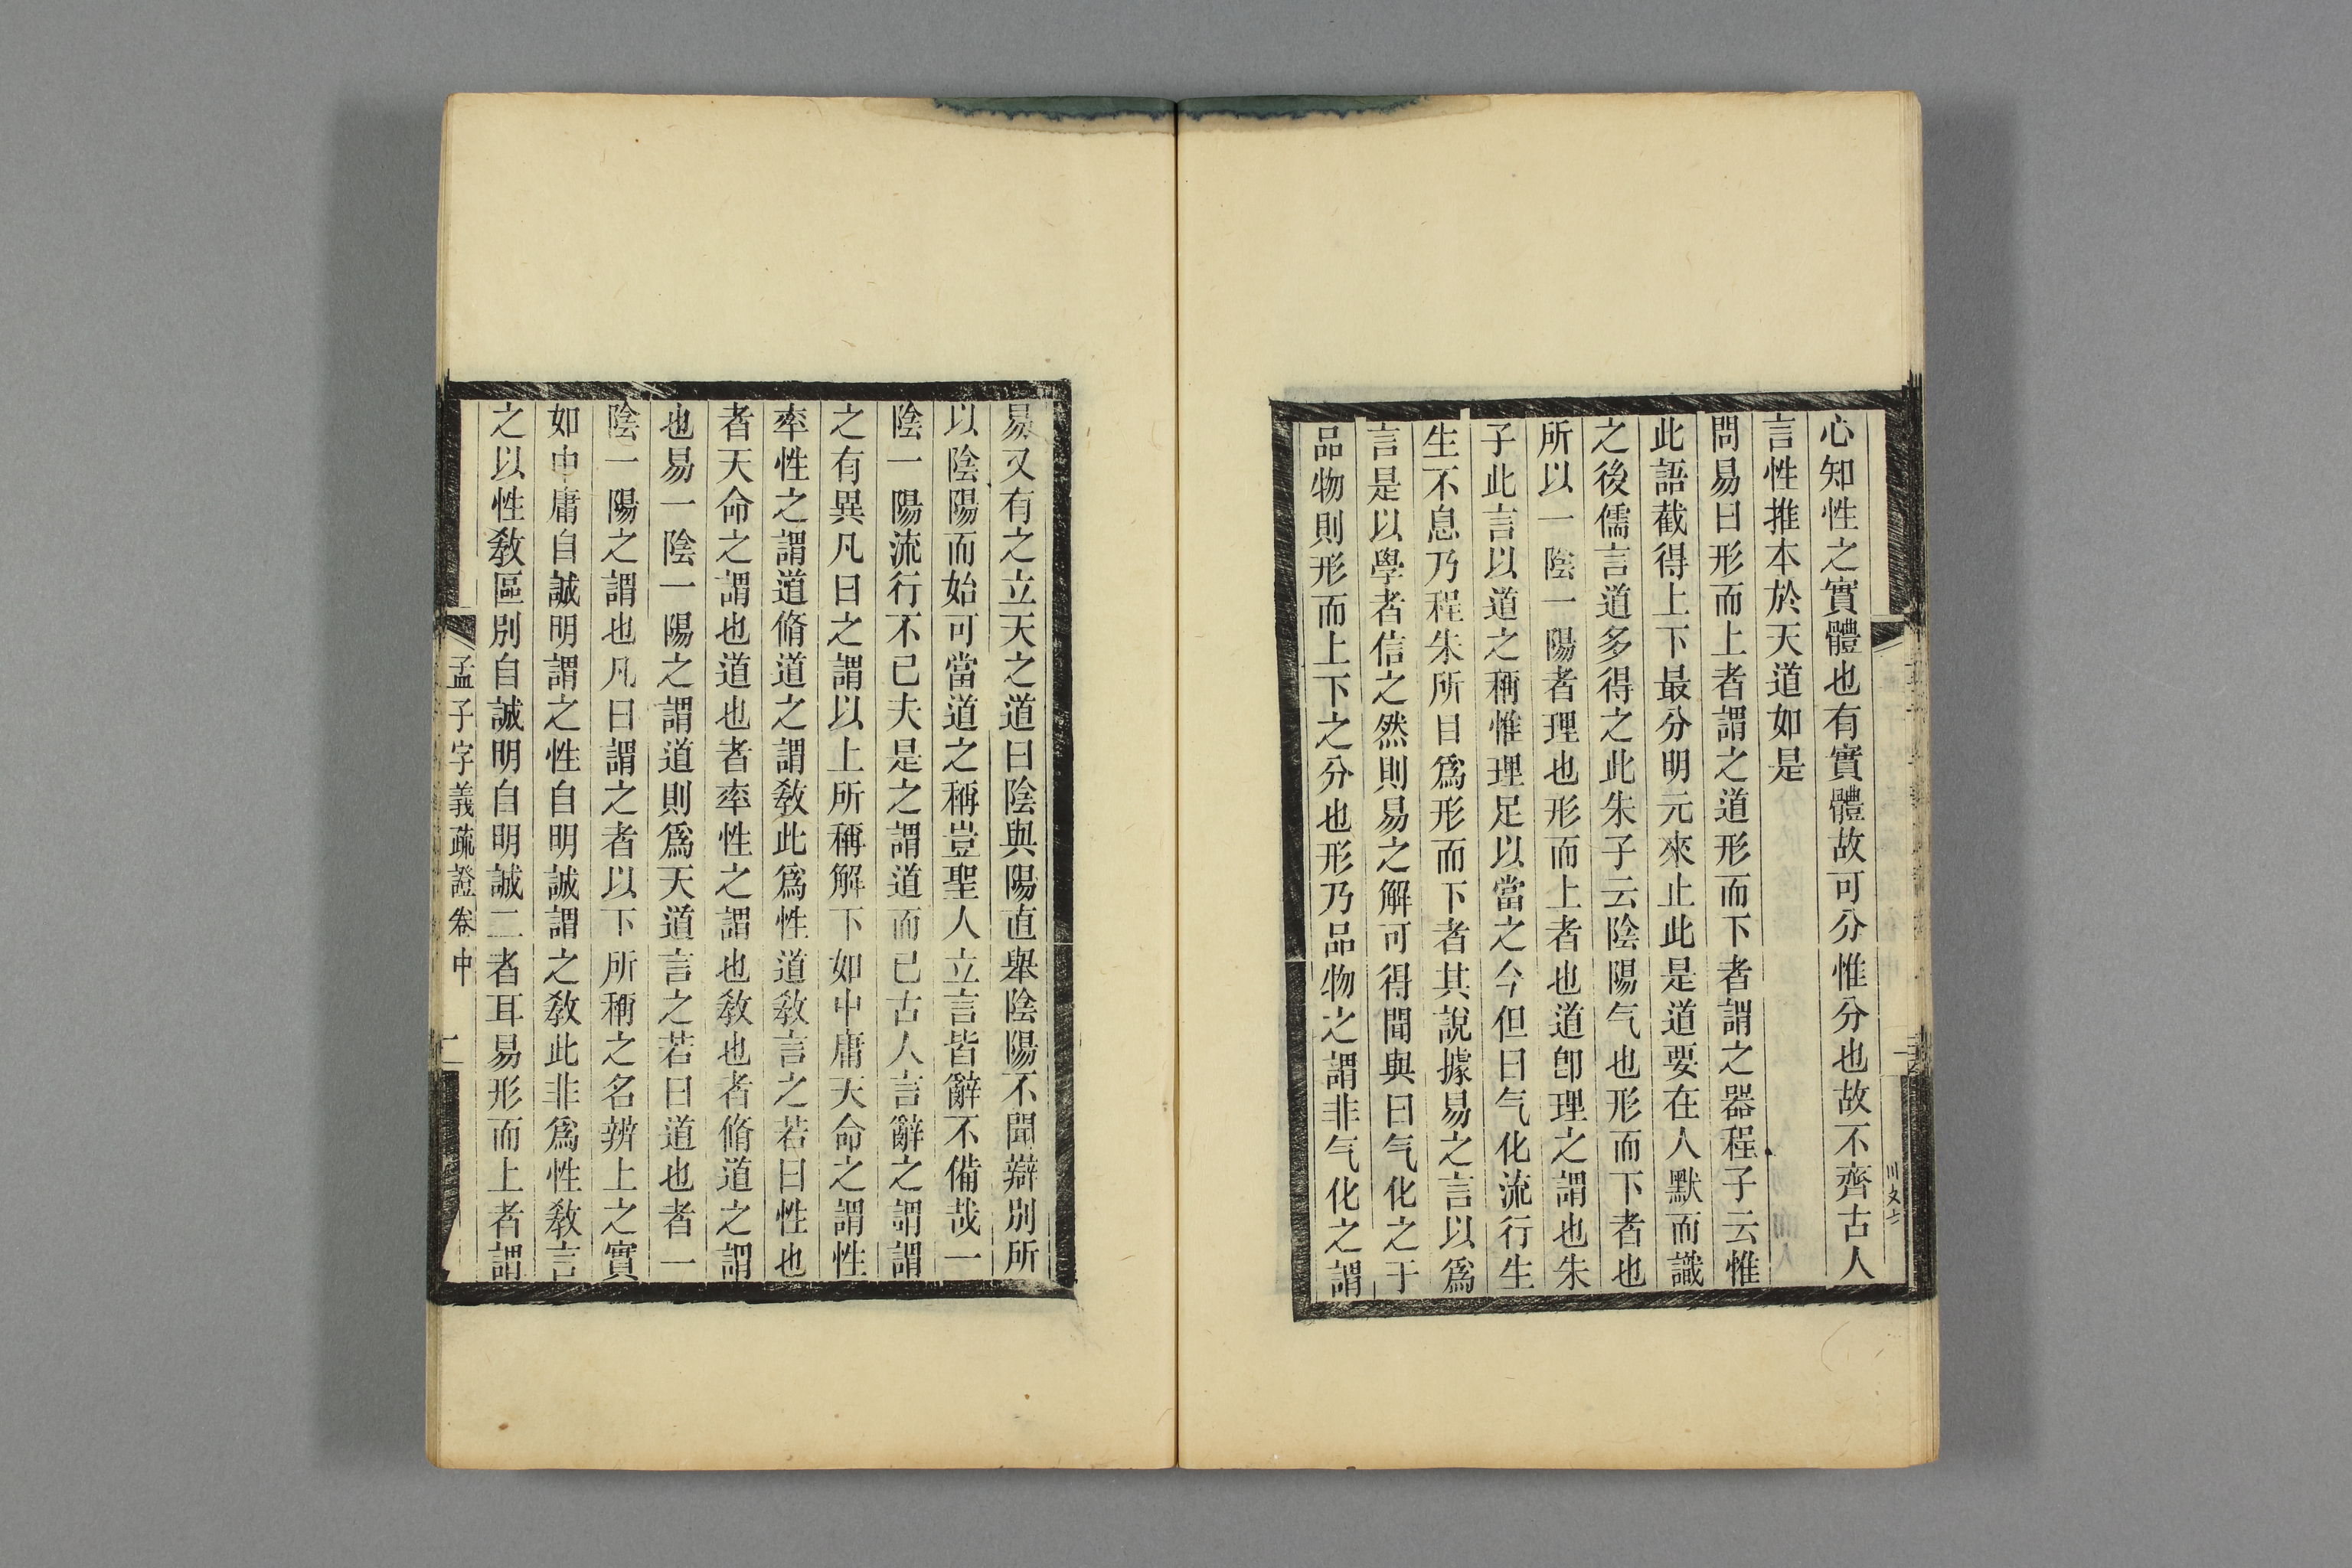 心知性之實體也有實體故可分惟分也故不齊古人
言性推本於天道如是
問易曰形而上者謂之道形而下者謂之器程子云惟
此語截得上下最分明元來止此是道要在人默而識
之後儒言道多得之此朱子云陰陽气也形而下者也
所以一陰一陽者理也形而上者也道卽理之謂也朱
子此言以道之稱惟理足以當之今但曰气化流行生
生不息乃程朱所目爲形而下者其說據易之言以爲
言是以學者信之然則易之解可得聞與曰气化之于
品物則形而上下之分也形乃品物之謂非气化之謂
易又有之立天之道曰陰與陽直舉陰陽不聞辯別所
以陰陽而始可當道之稱豈聖人立言皆辭不備哉一
陰一陽流行不已夫是之謂道而已古人言辭之謂謂
之有異凡曰之謂以上所稱解下如中庸天命之謂性
率性之謂道脩道之謂敎此爲性道敎言之若曰性也
者天命之謂也道也者率性之謂也敎也者脩道之謂
也易一陰一陽之謂道則爲天道言之若曰道也者一
陰一陽之謂也凡曰謂之者以下所稱之名辨上之實
如中庸自誠明謂之性自明誠謂之敎此非爲性敎言
之以性敎區別自誠明自明誠二者耳易形而上者謂
孟子字義疏證卷中 二